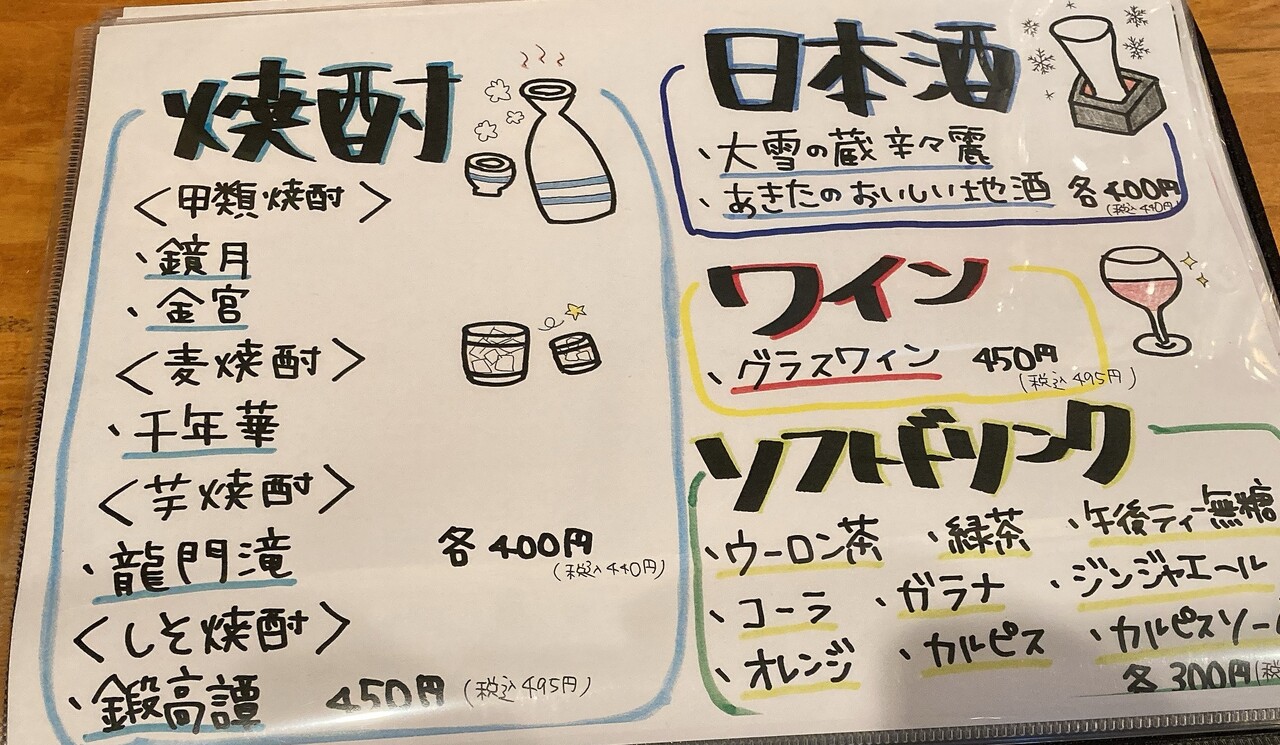 焼酎
〈甲類焼酎〉
・鏡月
・金宮
〈麦焼酎〉
・千年華
〈芋焼酎〉
・龍門滝
各400円
(税込440円)
〈しそ焼酎〉
・鍛高譚 450円 (税込495円)
日本酒
・大雪の蔵 辛々麗
・あきたのおいしい地酒 各400円
(税込440円)
ワイン
・グラスワイン 450円
(税込495円)
ソフトドリンク
・ウーロン茶 ・緑茶 ・午後ティー無糖
・コーラ ・ガラナ ・ジンジャエール
・オレンジ ・カルピス ・カルピスソー
各300円(税